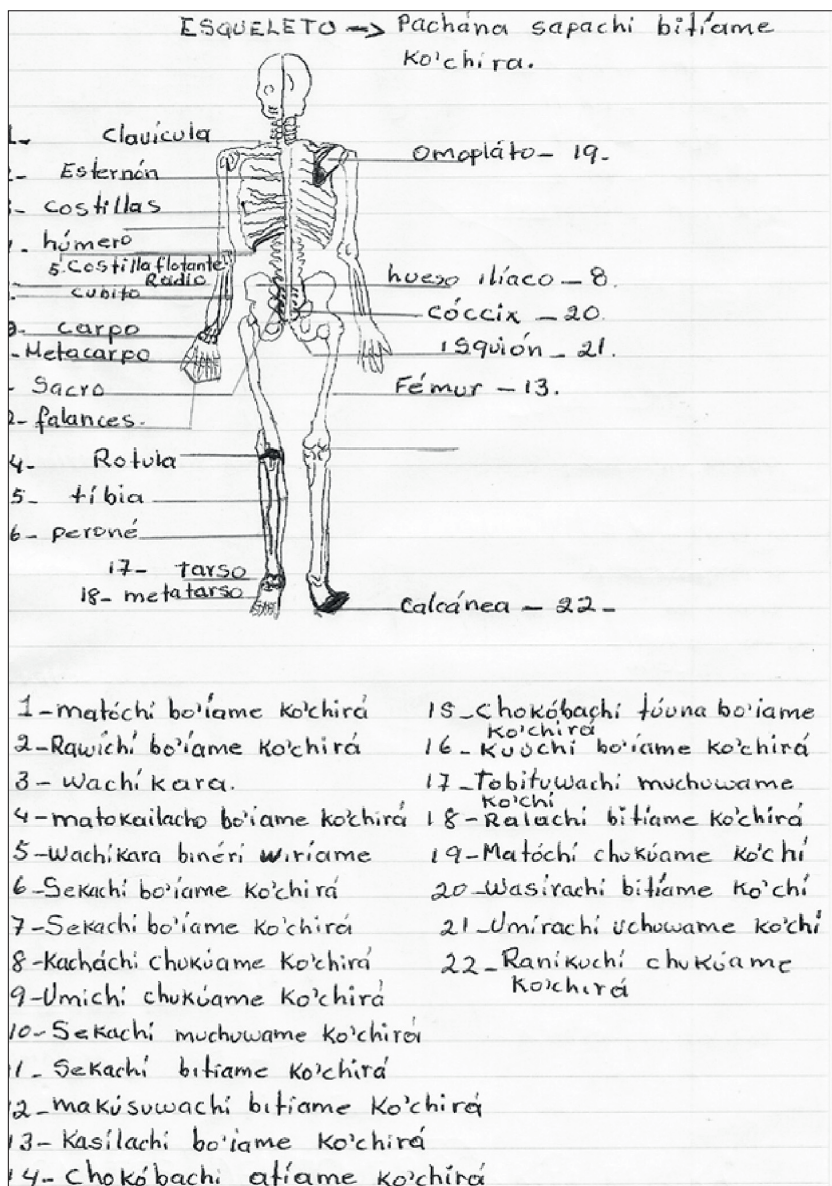 ESQUELETO -> Pachána sapachi bitíame
ko'chíra.
1- Clavícula
Esternón
- costillas
húmero
5. Costilla flotante
Radio
cubito
carpo
- Metacarpo
Sacro
2- falances.
4- Rotula
5- tíbia
6- peroné
17- tarso
18- metatarso
Omopláto- 19-
huezo ilíaco - 8.
CÓCCIX - 20.
isquión - 21.
Fémur - 13.
Calcánea - 22-
1-matóchi bo'íame ko'chirá
2-Rawíchi bo'íame ko'chirá
3-wachíkara.
4-matokailacho bo'íame ko'chirá
5-Wachíkara binéri wiríame
6-Sekachí bo'íame ko'chirá
7-Sekachí bo'íame ko'chirá
8-Kacháchi chukúame ko'chirá
9-Umichí chukúame ko'chirá
10-Sekachí muchuwame ko'chirá
1- Sekachí bitíame ko'chirá
2-makúsuwachi bitíame ko'chirá
13-Kasílachi bo'íame ko'chirá
14-Chokóbachi atíame ko'chirá
15-Chokóbachi túuna bo'íame
ko'chirá
16-kuúchi bo'íame ko'chirá
17-Tobitúwachi muchuwame
ko'chí
18-Ralachí bitíame ko'chirá
19-Matóchi chukúame ko'chí
20-Wasirachi bitíame ko'chí
21-Umírachi uchuwame ko'chí
22-Raníkuchi chukúame
ko'chirá